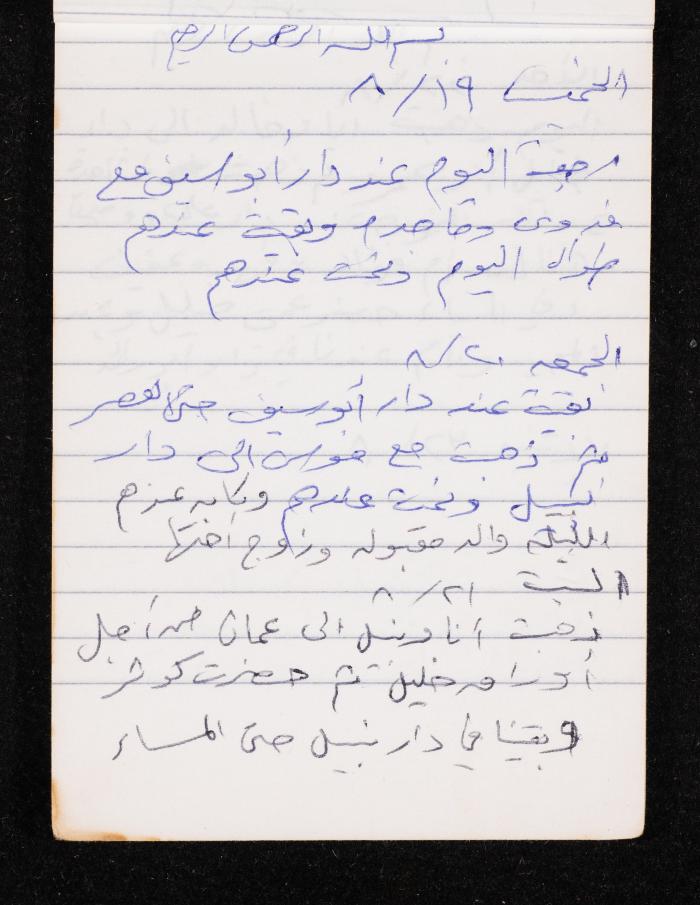 بسم الله الرحمن الرحيم
الخميس ١٩/٨
رجعت اليوم عند دار أبو سيف مع
فدوى وماجده وبقيت عندهم
طوال اليوم ونمت عندهم
الجمعه ٢٠/٨
بقيت عند دار أبو سيف حتى العصر
ثم ذهبت مع فوزي الى دار
نبيل ونمت عندهم وكان عندهم
الليلة والد مقبوله وزوج أختها
السبت ٢١/٨
ذهبت أنا ونبيل الى عمان من أجل
أوراق خليل ثم حضرت كوثر
وبقينا في دار نبيل حتى المساء